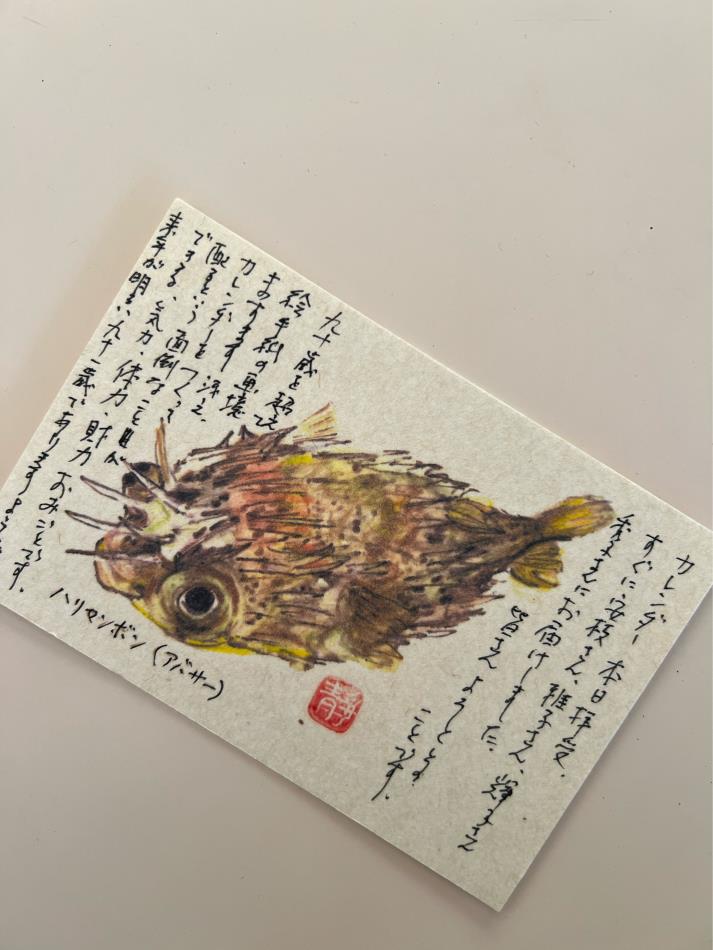 カレンダー 本日拝受、
すぐに安枝さん、雅子さん、
秀子さんにお届けしました。
皆さん よろしくとの
ことです。
九十歳を超え
絵手紙の
ますます
カレンダーを
配るという 面倒なこと
できる、気力、体力、財力 おみごとです。
来年が明るい九十一歳でありますように
ハリセンボン(アバサー)